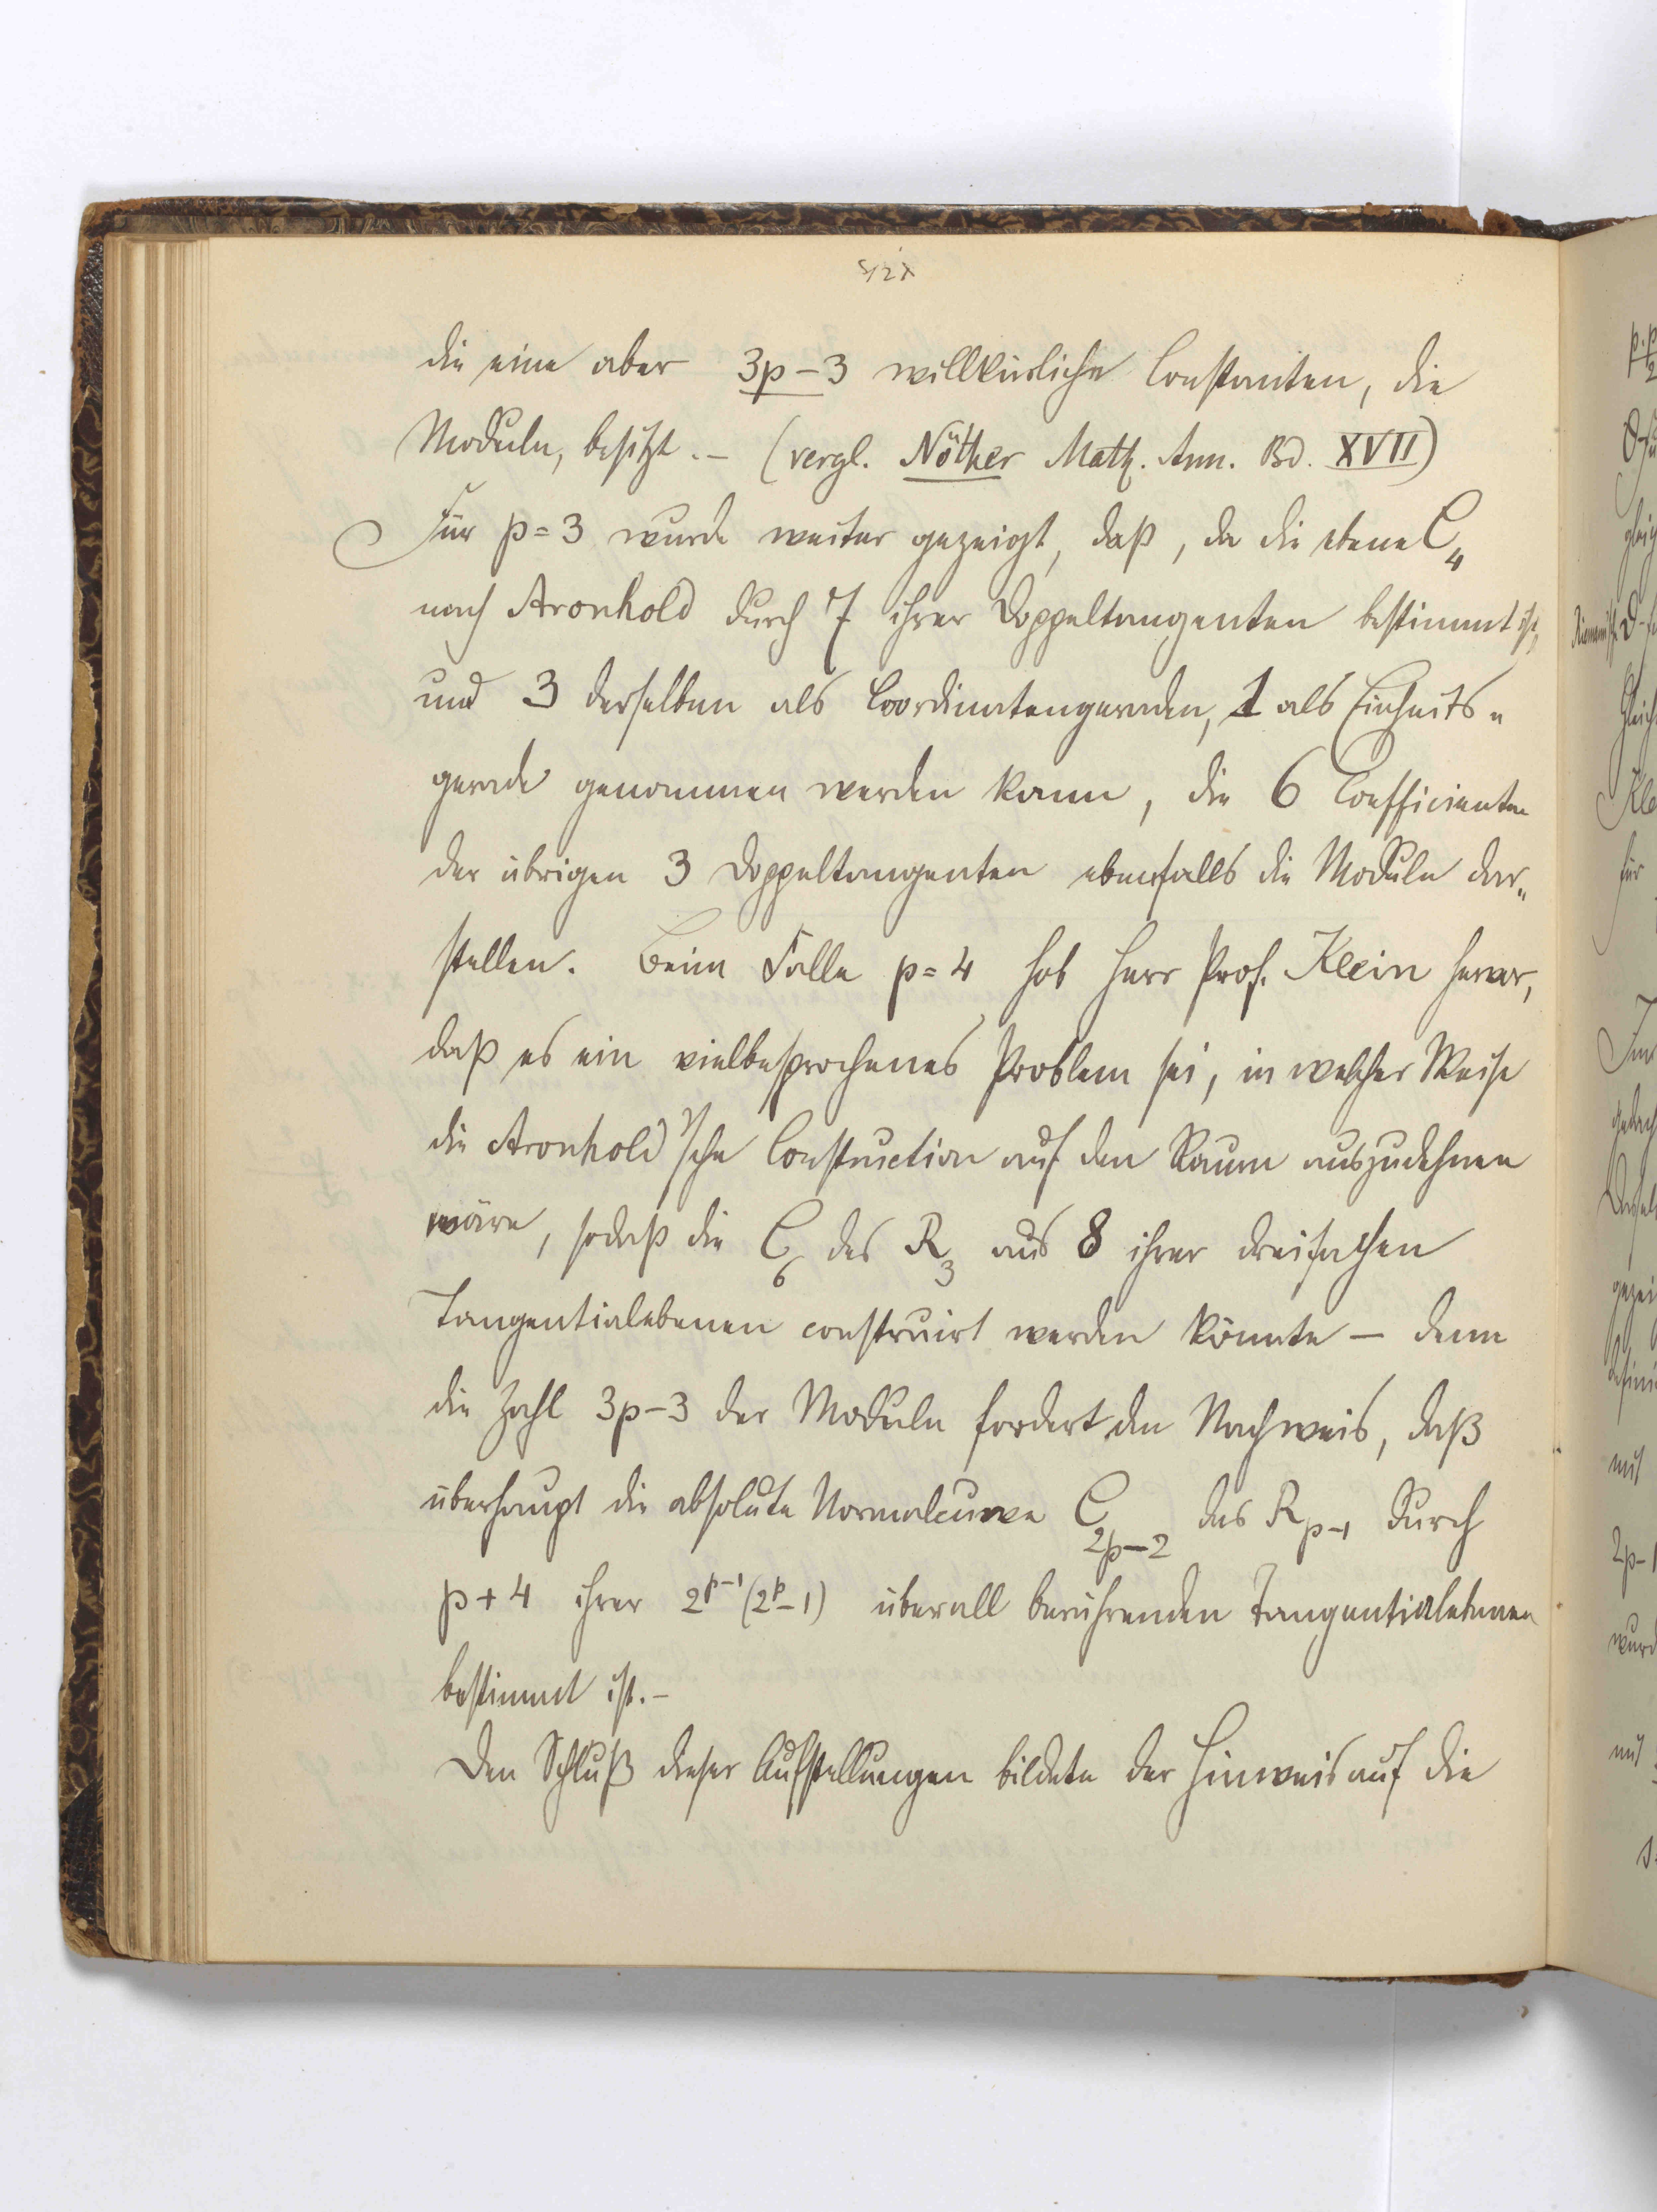 die eine aber 3p-3 willkürliche Constanten, die
Moduln, besitzt. – (vergl. Nöther Math. Ann. Bd. XVII)
Für p=3 wurde weiter gezeigt, daß, da die ebene C₄
nach Aronhold durch 7 ihrer Doppeltangenten bestimmt ist,
und 3 derselben als Coordinatengeraden, 1 als Einheits=
gerade genommen werden kann, die 6 Coefficienten
der übrigen 3 Doppeltangenten ebenfalls die Moduln dar=
stellen. Beim Falle p=4 hob Herr Prof. Klein hervor,
daß es ein vielbesprochenes Problem sei, in welcher Weise
die Aronhold'sche Construction auf den Raum auszudehnen
wäre, sodaß die C₆ des R₃ aus 8 ihrer dreifachen
Tangentialebenen construirt werden könnte – denn
die Zahl 3p-3 der Moduln fordert den Nachweis, daß
überhaupt die absolute Normalcurve C_{2p-2} des R_{p-1} durch
p+4 ihrer 2^{p-1}(2^p-1) überall berührenden Tangentialebenen
bestimmt ist. –
Den Schluß dieser Aufstellungen bildete der Hinweis auf die